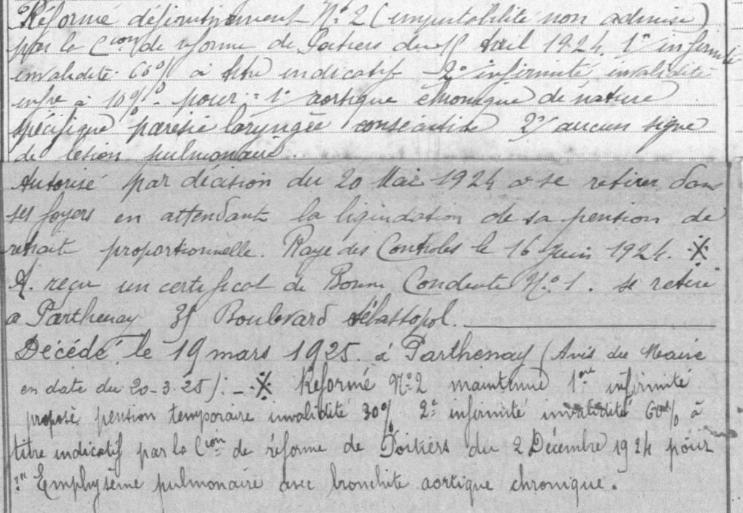 Réformé définitivement N°2 (imputabilité non admise)
par la Cion de réforme de Poitiers du Avril 1924. 1° infirmité
invalidité 60% à titre indicatif - 2° infirmité invalidité
infre à 10% - pour : 1° aortique chronique de nature
spécifique parésie laryngée consécutive 2°/ aucun signe
de lésion pulmonaire.
Autorisé par décision du 20 Mai 1924 à se retirer dans
ses foyers en attendant la liquidation de sa pension de
retraite proportionnelle. Rayé des Contrôles le 16 Juin 1924. ※
A reçu un certificat de Bonne Conduite N°1. se retire
à Parthenay 35 Boulevard Sébastopol.
Décédé le 19 mars 1925 à Parthenay (Avis du Maire
en date du 20-3-25). - ※ Réformé N°2 maintenu 1ere infirmité
proposé pension temporaire invalidité 30% 2e infirmité invalidité 60% à
titre indicatif par la Cion de réforme de Poitiers du 2 Décembre 1924 pour
1er Emphysème pulmonaire avec bronchite aortique chronique.